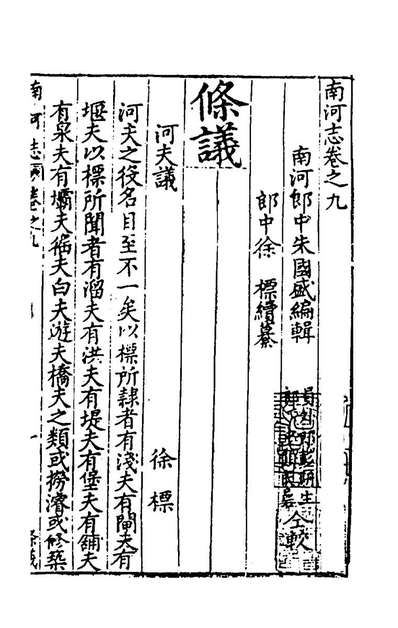 南河志卷之九
南河郎中朱國盛編輯
郎中徐 標續纂
仝較
條議
河夫議
徐 標
河夫之役名目至不一矣以標所隸者有淺夫有閘夫有
堰夫以標所聞者有溜夫有洪夫有堤夫有堡夫有舖夫
有泉夫有壩夫徭夫白夫遊夫橋夫之類或撈濬或修築
南河志卷之九
條議